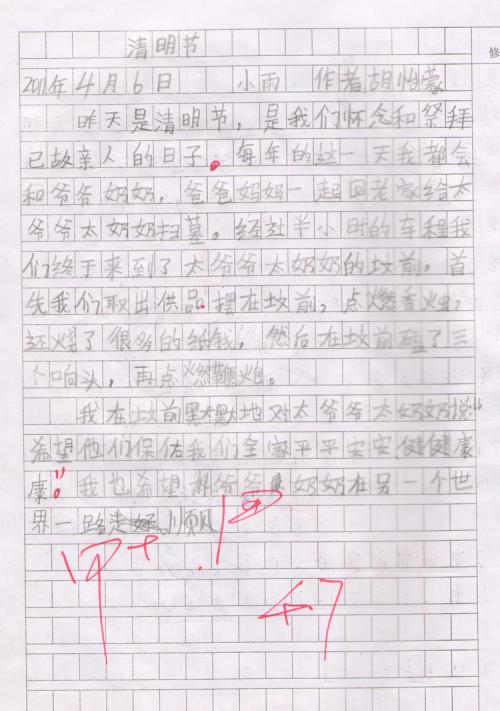 清明节
修
2011年4月6日 小雨 作者胡怡蒙
昨天是清明节，是我们怀念和祭拜
已故亲人的日子。每年的这一天我都会
和爷爷奶奶，爸爸妈妈一起回老家给太
爷爷太奶奶扫墓。经过半小时的车程我
们终于来到了太爷爷太奶奶的坟前。首
先我们取出供品摆在坟前，点燃香烛，
还烧了很多的纸钱，然后在坟前磕了三
个响头，再点燃鞭炮。
我在坟前默默地对太爷爷太奶奶说“
希望他们保佑我们全家平平安安、健健康
康”。我也希望爷爷奶奶在另一个世
界一路走好。顺风
甲+
4.7